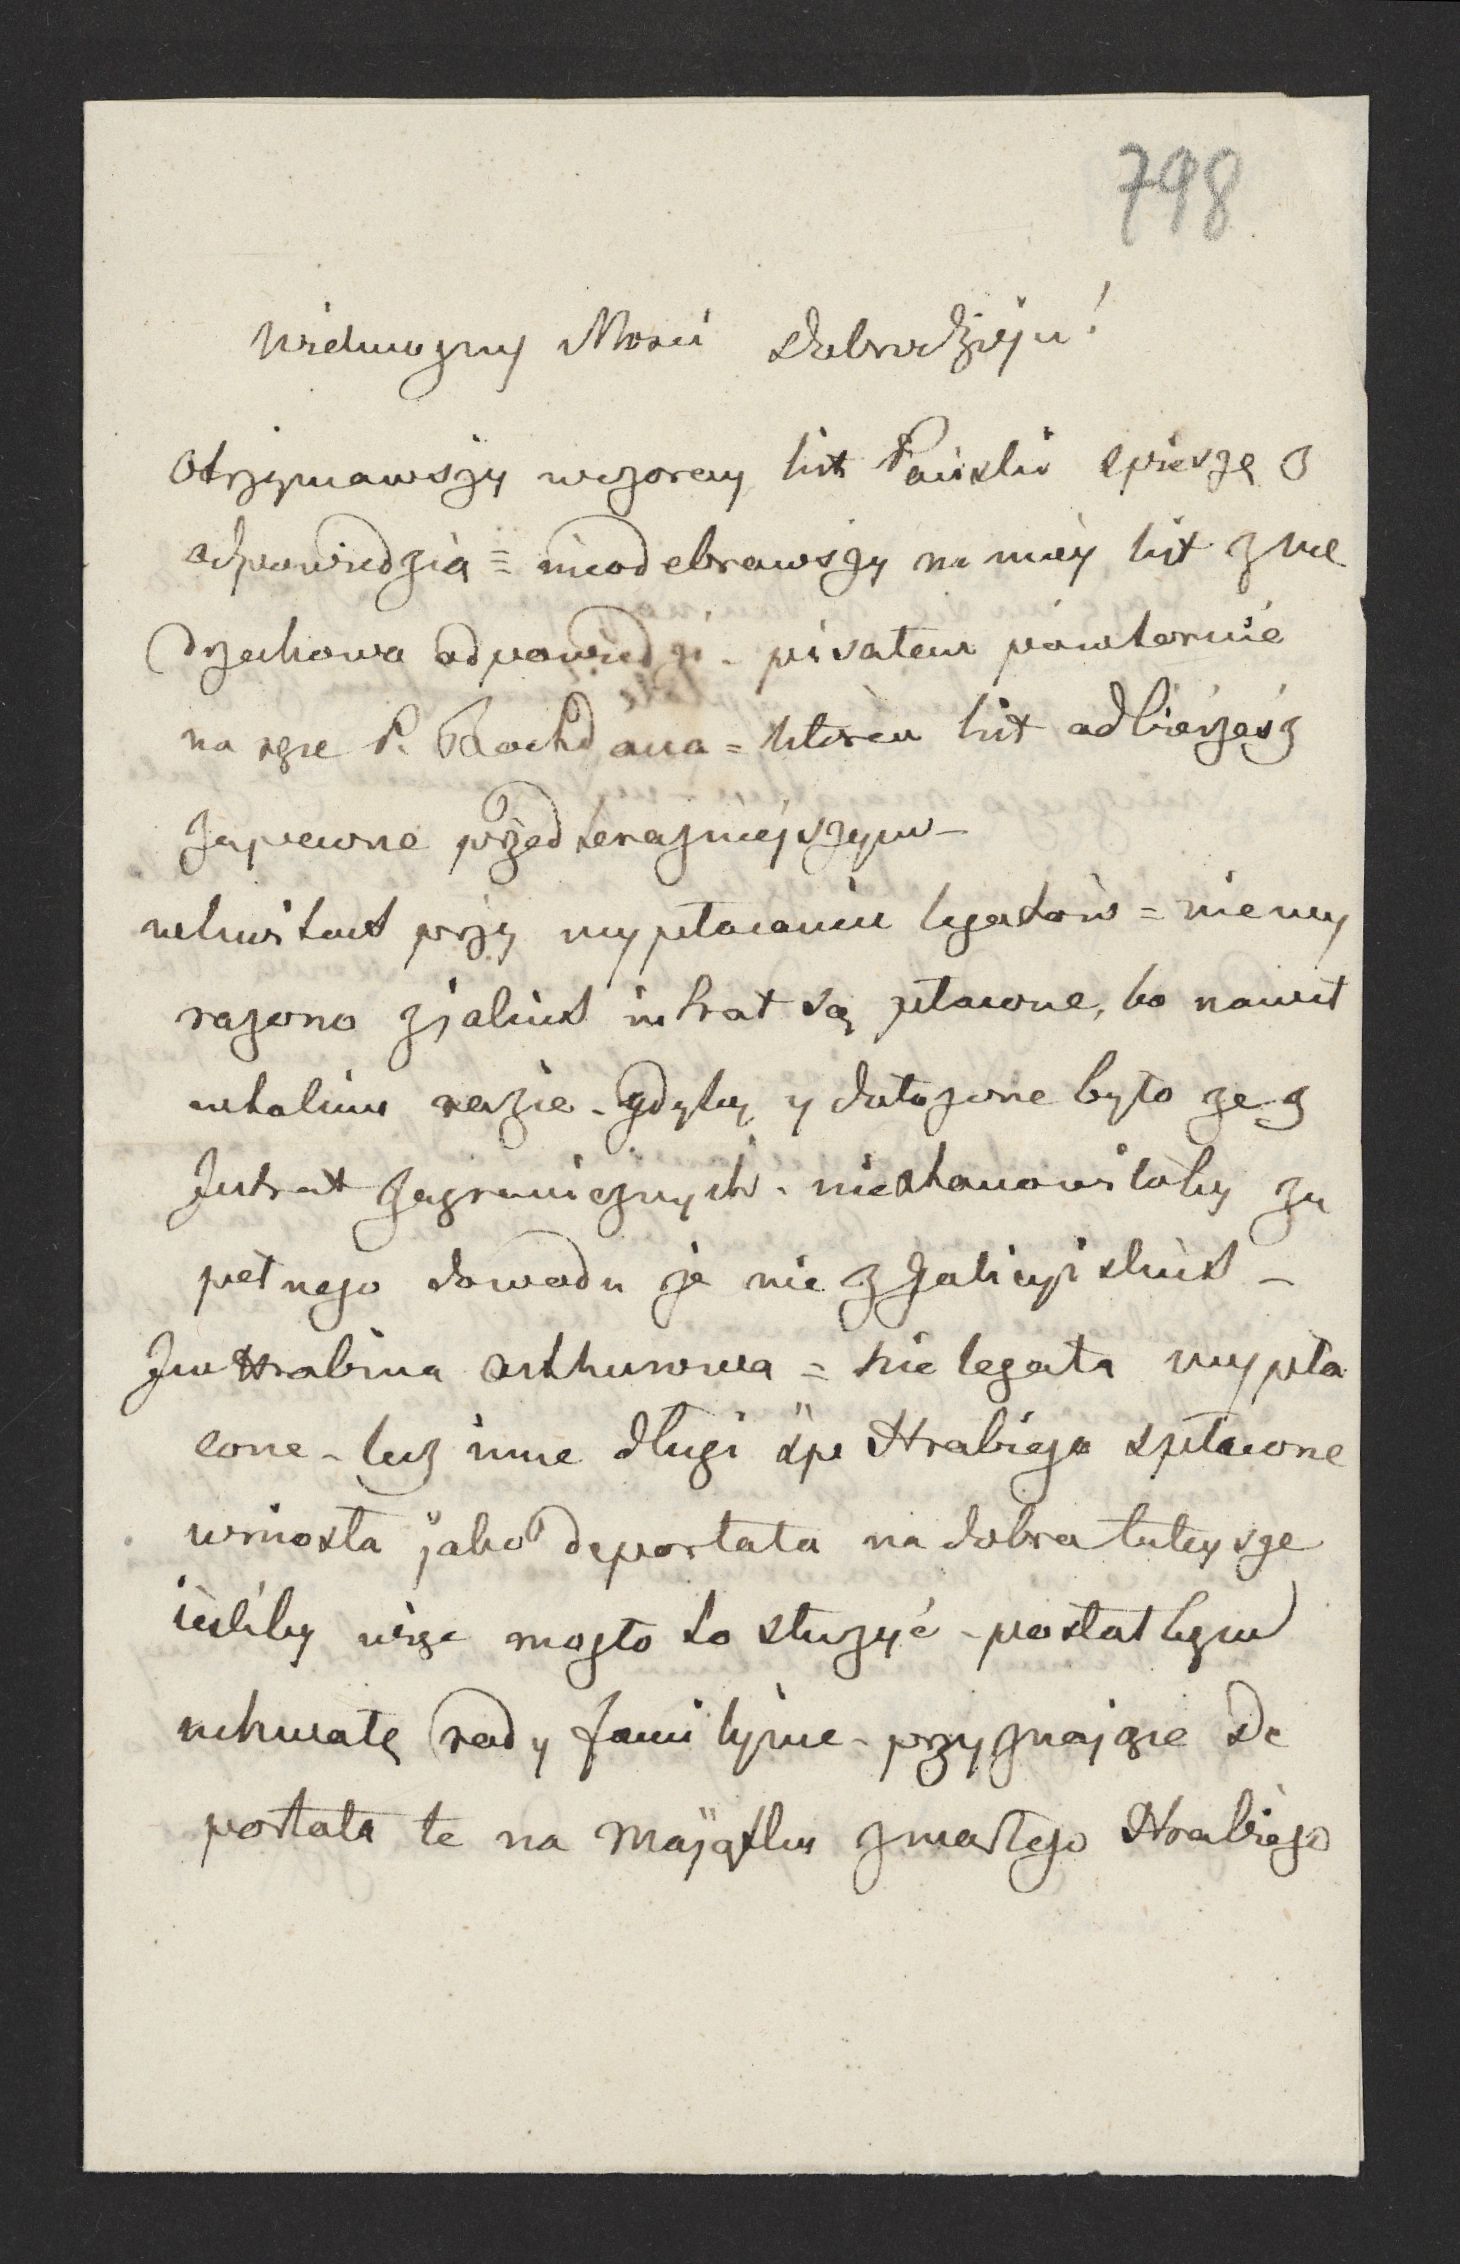 798
Wielmożny Mosci Dobrodzieju!
Otrzymawszy wczoray list Pański spieszę z
odpowiedzią = nieodebrawszy na móy list z Me
drzechowa odpowiedzi - pisałem powtornie
na ręce P. Bochdana = ktoren list odbierzesz
zapewne przed terazniejszym -
wkwitach przy wypłacaniu legatów = niewy
rażono zjakich intrat są płacone, bo nawet
wtakim razie - gdyby y dołożone było ze z
Intrat zagranicznych - niestanowiłoby zu
pełnego dowodu że nie z Galicyiskich -
Jw Hrabina Arthurowa = te legata wypła
cone - lub inne długi śp Hrabiego spłacone
wniosła jako deportata na dobra tuteysze
ieśliby więc mogło to służyć - posłał bym
uchwałę rady familijne - przyznając De
portata te na Majątku zmarłego Hrabiego